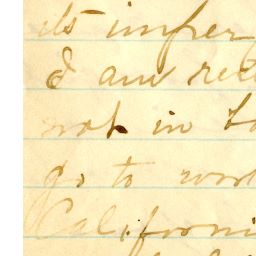 its imper
I am rec
not in
go to work
Californi